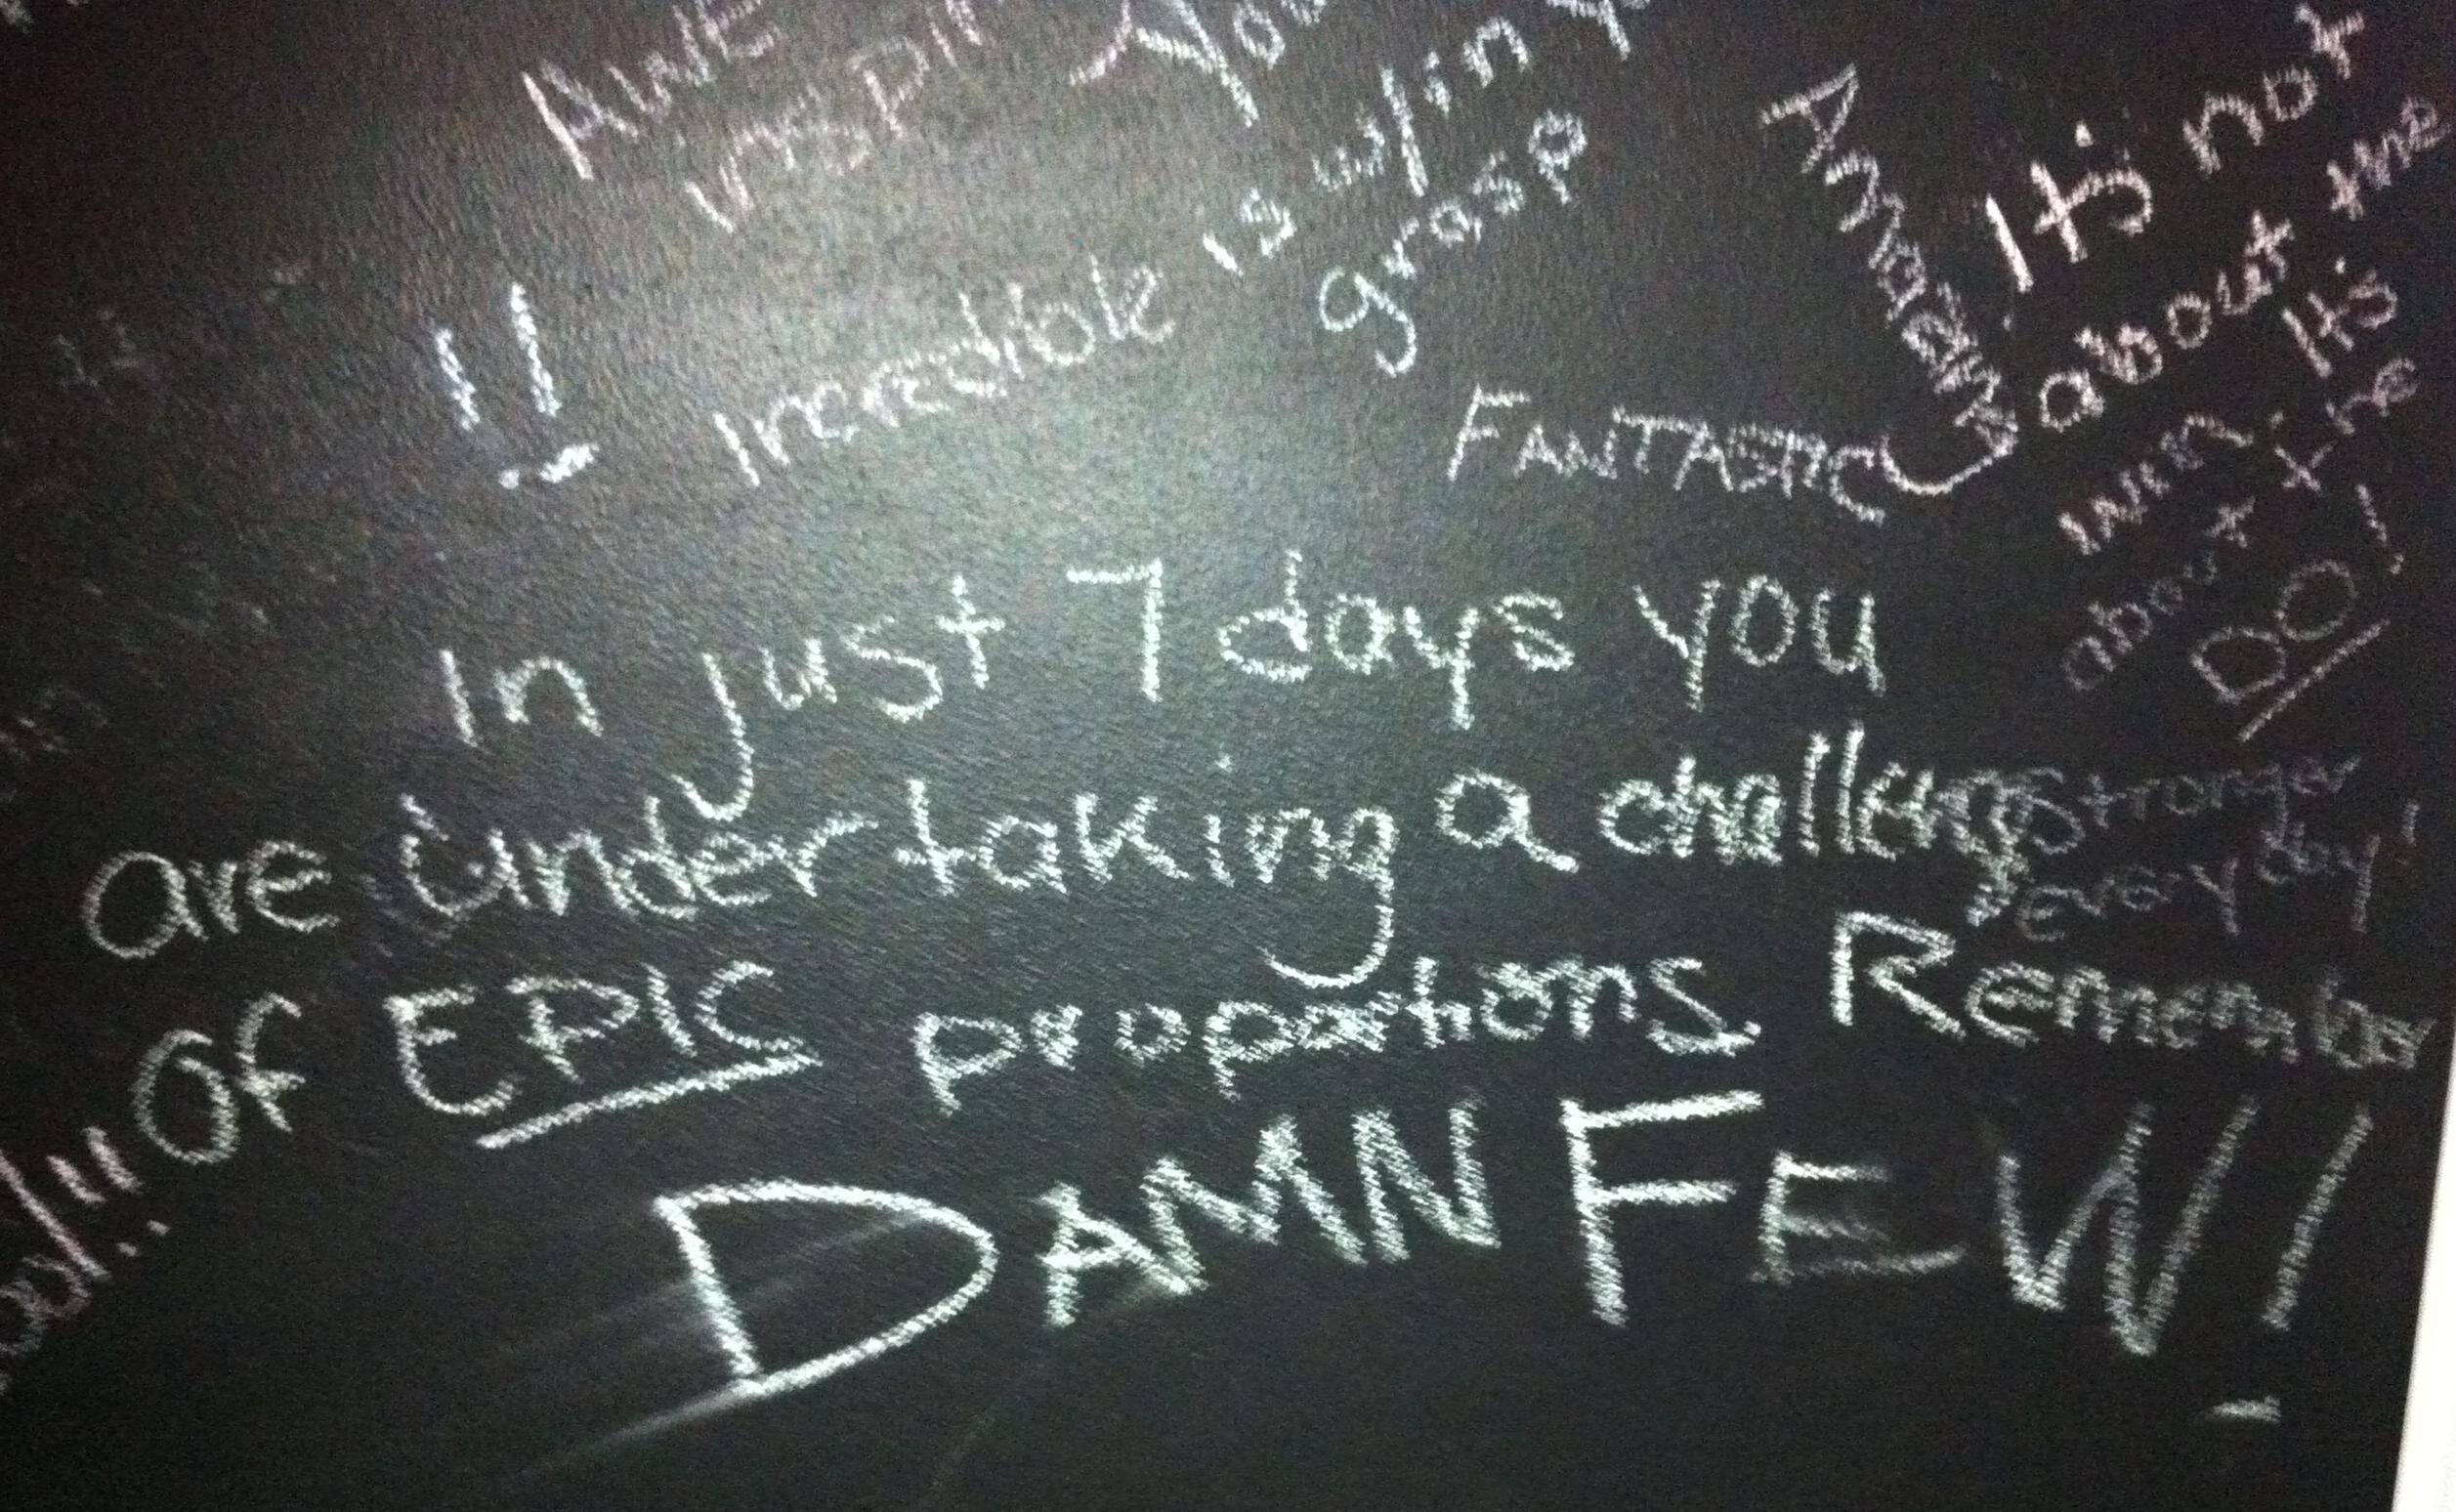 AWE
INSPI
You
Incredible is w/in y
grasp
Amazing
FANTASTIC
It's not
about the
It's
about the
DO!
!!
In just 7 days you
are undertaking a challenge
Of EPIC proportions Remember
DAMN FEW!
Stronger
every day!